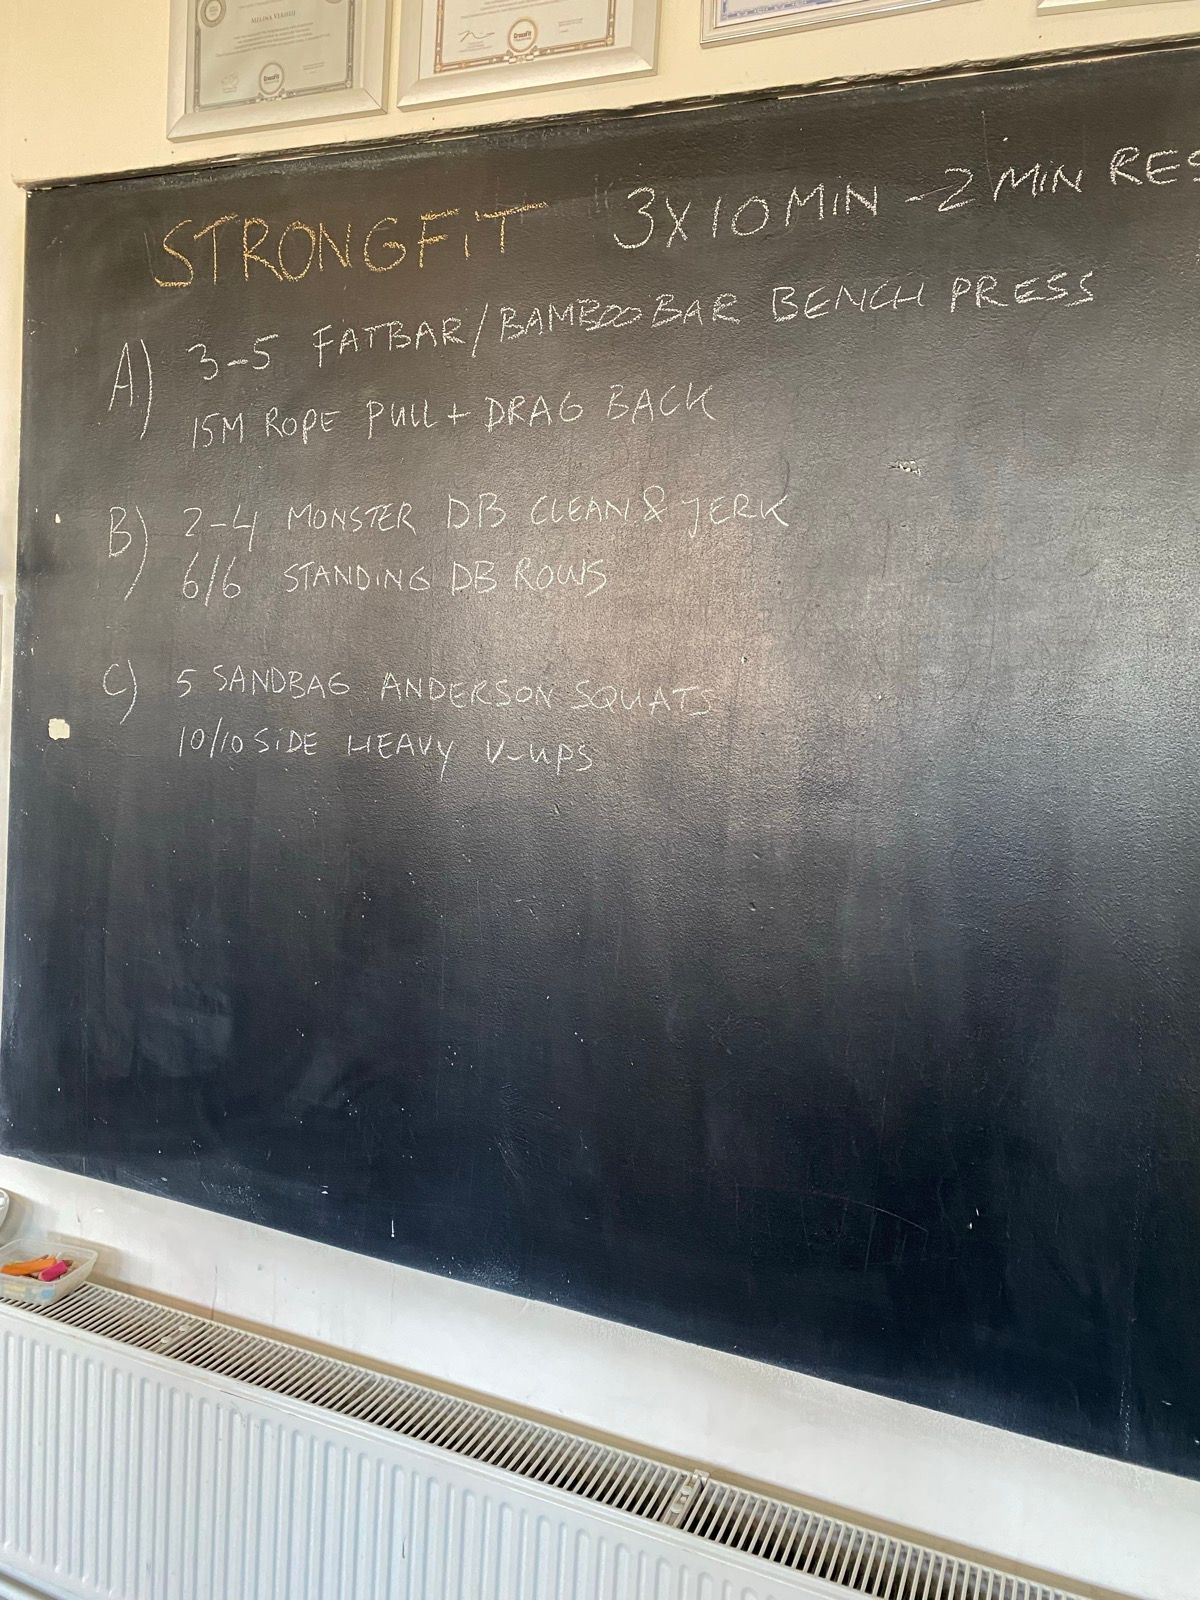 STRONGFIT 3X10MIN - 2 MIN RES
A) 3-5 FATBAR/BAMBOOBAR BENCH PRESS
15M ROPE PULL + DRAG BACK
B) 2-4 MONSTER DB CLEAN & JERK
6/6 STANDING DB ROWS
C) 5 SANDBAG ANDERSON SQUATS
10/10 SIDE HEAVY V-UPS